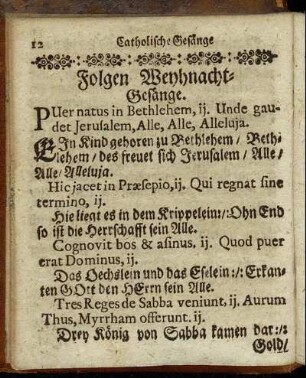 12 Catholische Gesänge
Folgen Weyhnacht-
Gesänge.
PUer natus in Bethlehem, ij. Unde gau-
det Jerusalem, Alle, Alle, Alleluja.
EIn Kind geboren zu Bethlehem / Bethl
lehem / des freuet sich Jerusalem / Alle /
Alle / Alleluja.
Hic jacet in Præsepio, ij. Qui regnat sine
termino, ij.
Hie liegt es in dem Krippelein :/: Ohn End
so ist die Herrschafft sein Alle.
Cognovit bos & asinus, ij. Quod puer
erat Dominus, ij.
Das Oechslein und das Eselein :/: Erkan-
ten GOtt den HErrn sein Alle.
Tres Reges de Sabba veniunt, ij. Aurum
Thus, Myrrham offerunt. ij.
Drey König von Sabba kamen dar :/:
Gold /